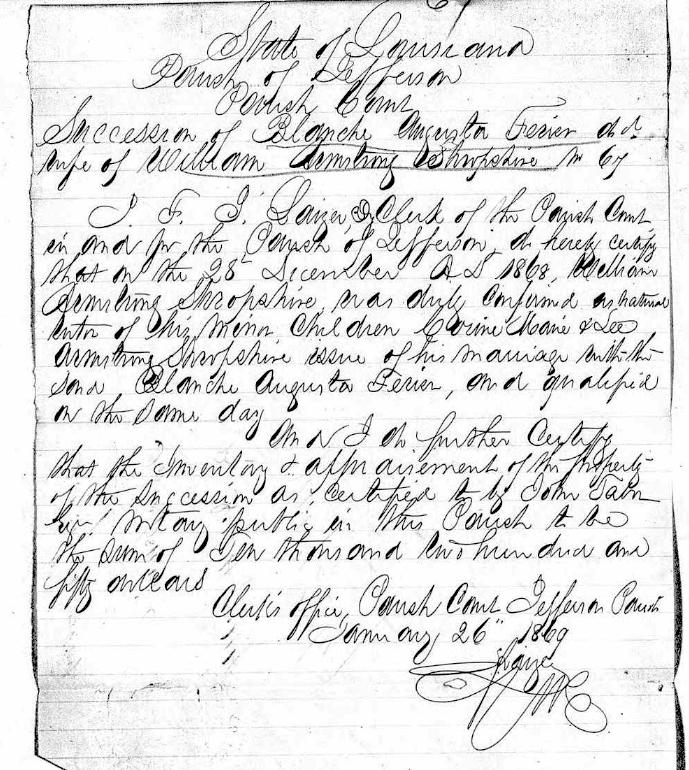 State of Louisiana
Parish of Jefferson
Parish Court
Succession of Blanche Augusta Ferier decd
wife of William Armstrong Shropshire No 67
I. F. J. Dy Clerk of the Parish Court
in and for the Parish of Jefferson, do hereby certify
that on the 28" December AD 1868, William
Armstrong Shropshire, was duly confirmed as natural
tutor of his minor Children Corine Marie & Lee
Armstrong Shropshire issue of his marriage with the
said Blanche Augusta Ferier, and qualified
on the same day
And I do further Certify
that the Inventory & appraisement of the Property
of the Succession as certified to by John
notary public in this Parish to be
the sum of Ten thousand two hundred and
fifty dollars
Clerk's office, Parish Court Jefferson Parish
January 26" 1869